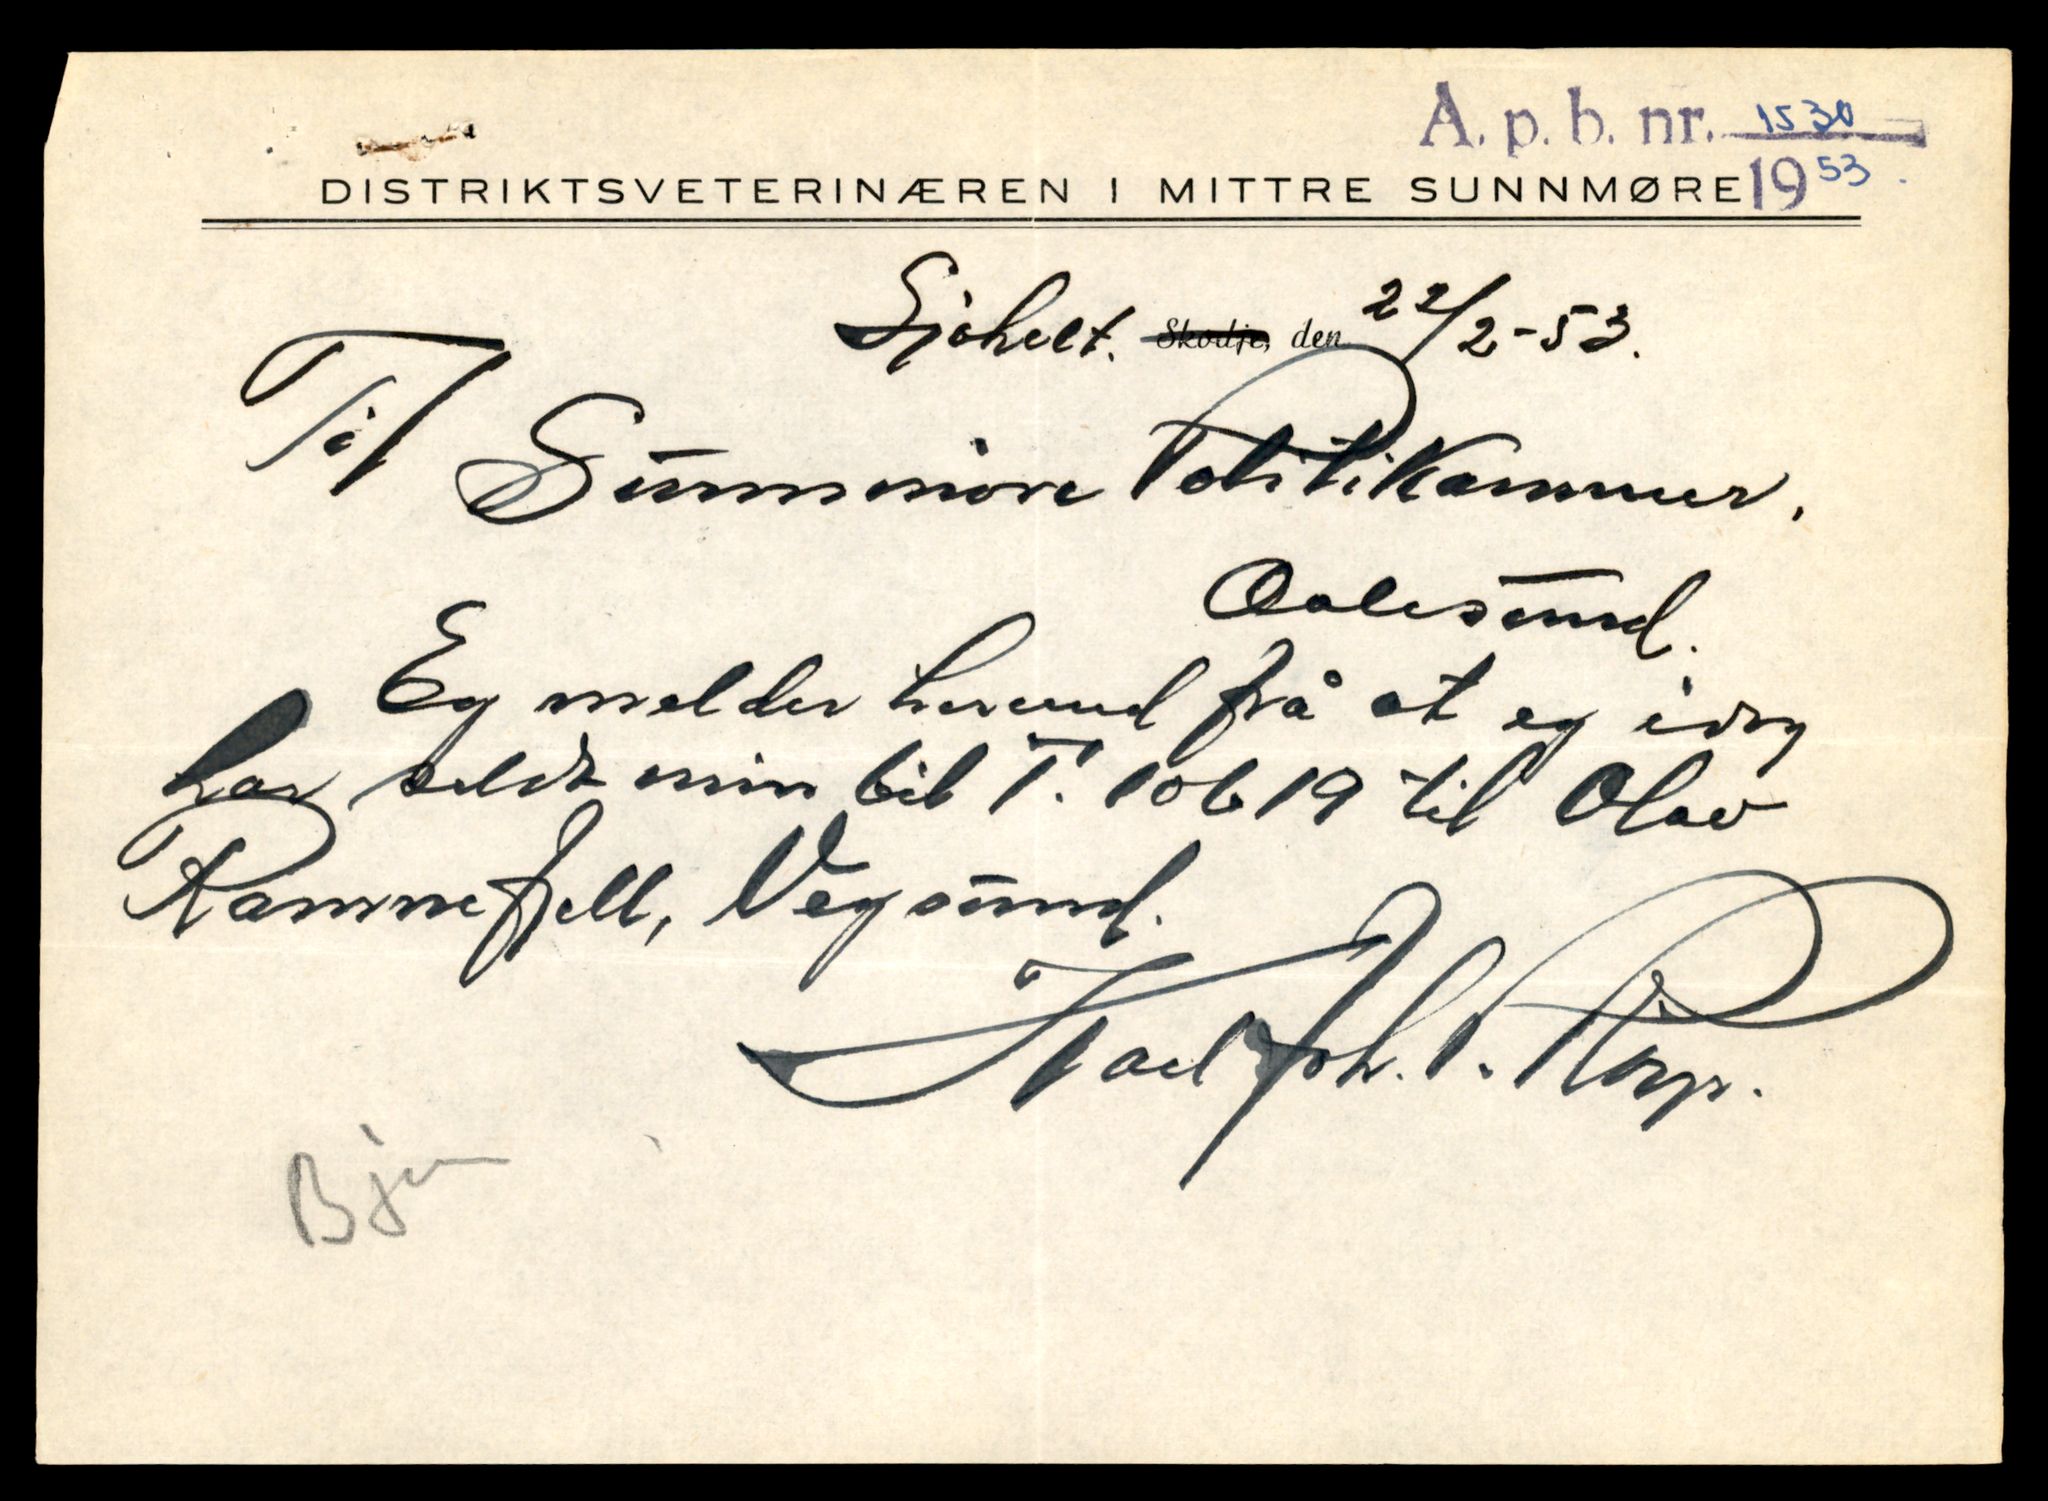 A. p. b. nr. 1530
1953.
DISTRIKTSVETERINÆREN I MITTRE SUNNMØRE
Sjøholt. Skodje, den 22/2-53.
Til Sunnmøre Politikammer,
Aalesund.
Eg melder herved frå at eg idag
har seldt min bil T. 10619 til Olav
Ramnefjell, Vegsund.
Karl Joh. P. Rörp.
Bj